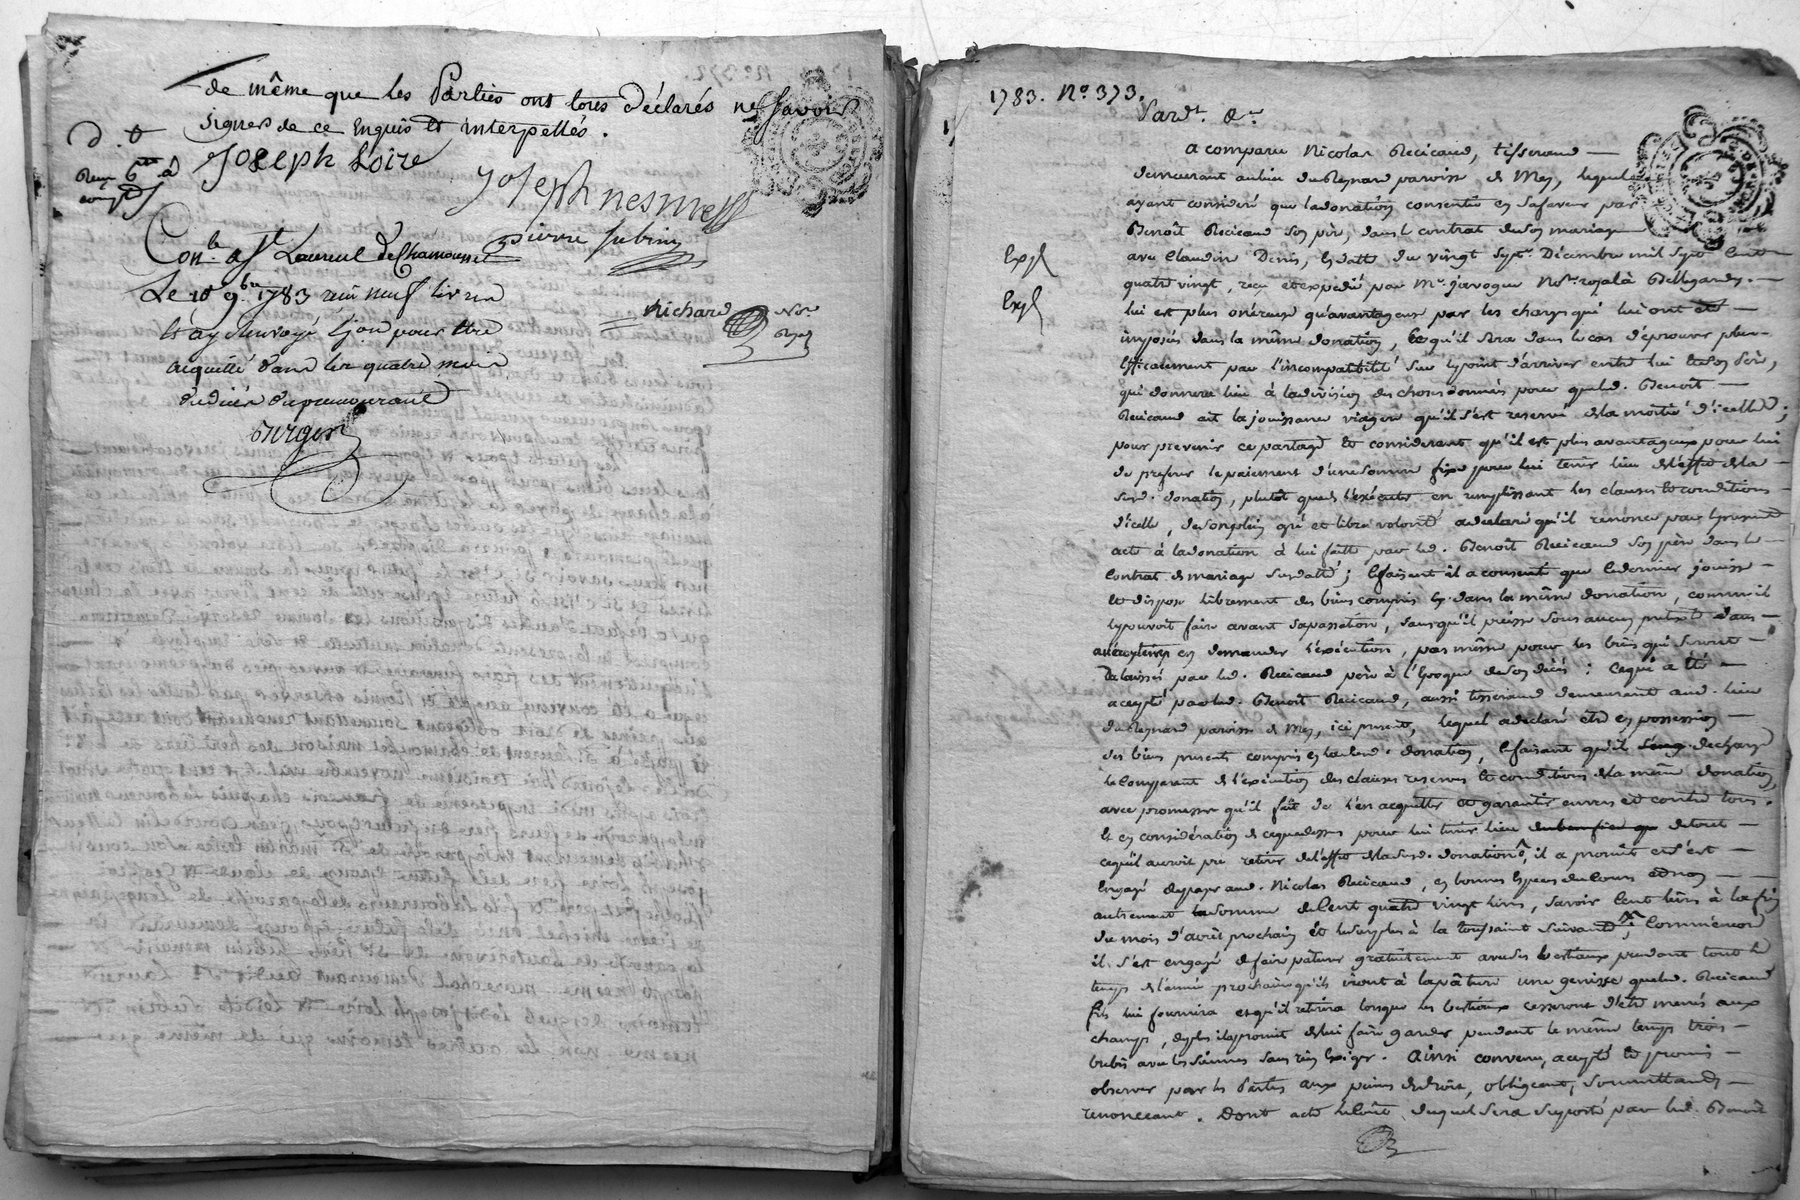 de même que les Parties ont tous déclarés ne savoir
signer de ce enquis et interpellés.
D. t
Joseph Loire
Joseph nesme
pierre subrin
Con.le a St Laurent de Chamousset
Le 10 9.bre 1783 reçu neuf livres
Richard No.re
Royal
acquitté dans les quatre mois
du décès du premourant
Berger
1783. No. 373.
Pard.t &c
a comparu Nicolas Recicaud, tisserand
demeurant au lieu du Reynard paroisse de Mey, lequel
ayant consideré que la donation consentie en sa faveur par
Benoît Recicaud son père, dans le contrat de son mariage
avec Claudine Denis, en datte du vingt sept Décembre mil sept cent
quatre vingt, reçu et expedié par Me. Javogue No.re royal à Bellegarde.
Expé
Expé
lui est plus onéreuse qu'avantageuse par les charges qui lui ont été
imposés dans la même donation, et qu'il sera dans le cas d'éprouver plus
efficalement par l'incompatibilité sur le point d'arriver entre lui et son père,
qui donneroit lieu à la division des choses données pour que led. Benoît
Recicaud ait la jouissance viagere qu'il s'est reservé de la moitié d'icelles;
pour prevenir ce partage et considerant qu'il est plus avantageux pour lui
de preferer le paiement d'une somme fixe pour lui tenir lieu de l'effet de la
susd. donation, plutôt que de l'exécuter en remplissant les clauses et conditions
d'icelle, de son plein gré et libre volonté a declaré qu'il renonce par le present
acte à la donation à lui faitte par led. Benoît Recicaud son père dans le
contrat de mariage susdatté; ce faisant il a consenti que ce dernier jouisse
et dispose librement des biens compris en dans la même donation, comme il
le pouvoit faire avant sa passation, sans qu'il puisse sous aucun pretexte dans
aucun tems en demander l'exécution, pas même pour les biens qui seront
delaissés par led. Recicaud père à l'époque de son décès: ce qui a été
accepté par led. Benoît Recicaud, aussi tisserand demeurant aud. lieu
du Reynard paroisse de Mey, ici present, lequel a declaré être en possession
des biens presents compris en lad. donation, ce faisant qu'il decharge
le comparant de l'exécution des clauses reserves et conditions de la même donation,
avec promesse qu'il fait de l'en acquitter et garantir envers et contre tous.
Et en considération de ce que dessus pour lui tenir lieu de tout
ce qu'il auroit pu retirer de l'effet de la susd. donation, il a promit et s'est
engagé de payer aud. Nicolas Recicaud, en bonnes espèces du cours et non
autrement la somme de cent quatre vingt livres, savoir cent livres à la fin
du mois d'avril prochain et le surplus à la Toussaint suivante;
il s'est engagé de faire pâturer gratuitement avec ses bestiaux pendant tout le
temps de l'année prochaine qu'ils iront à la pâture une genisse que led. Recicaud
fils lui fournira et qu'il retirera lorsque les bestiaux cesseront d'être menés aux
champs, de plus il a promit de lui faire garder pendant le même temps trois
brebis avec les siennes sans rien exiger. Ainsi convenu, accepté et promis
observer par les Parties aux peines de droit, obligeant, soumettant,
renonceant. Dont acte le coût duquel sera suporté par led. Benoît